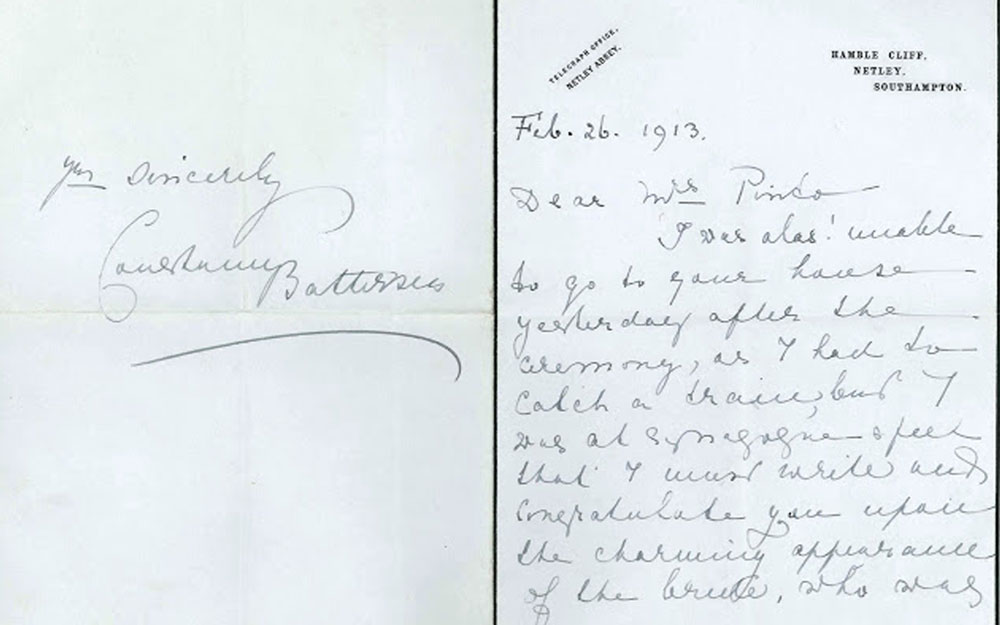 TELEGRAPH OFFICE,
NETLEY ABBEY.
HAMBLE CLIFF,
NETLEY,
SOUTHAMPTON.
Feb. 26. 1913.
Dear Mrs Pinto
I was alas! unable
to go to your house
yesterday after the
ceremony, as I had to
catch a train, but I
was at synagogue & feel
that I must write and
congratulate you upon
the charming appearance
of the bride, who was
yrs sincerely
Constance Battersea